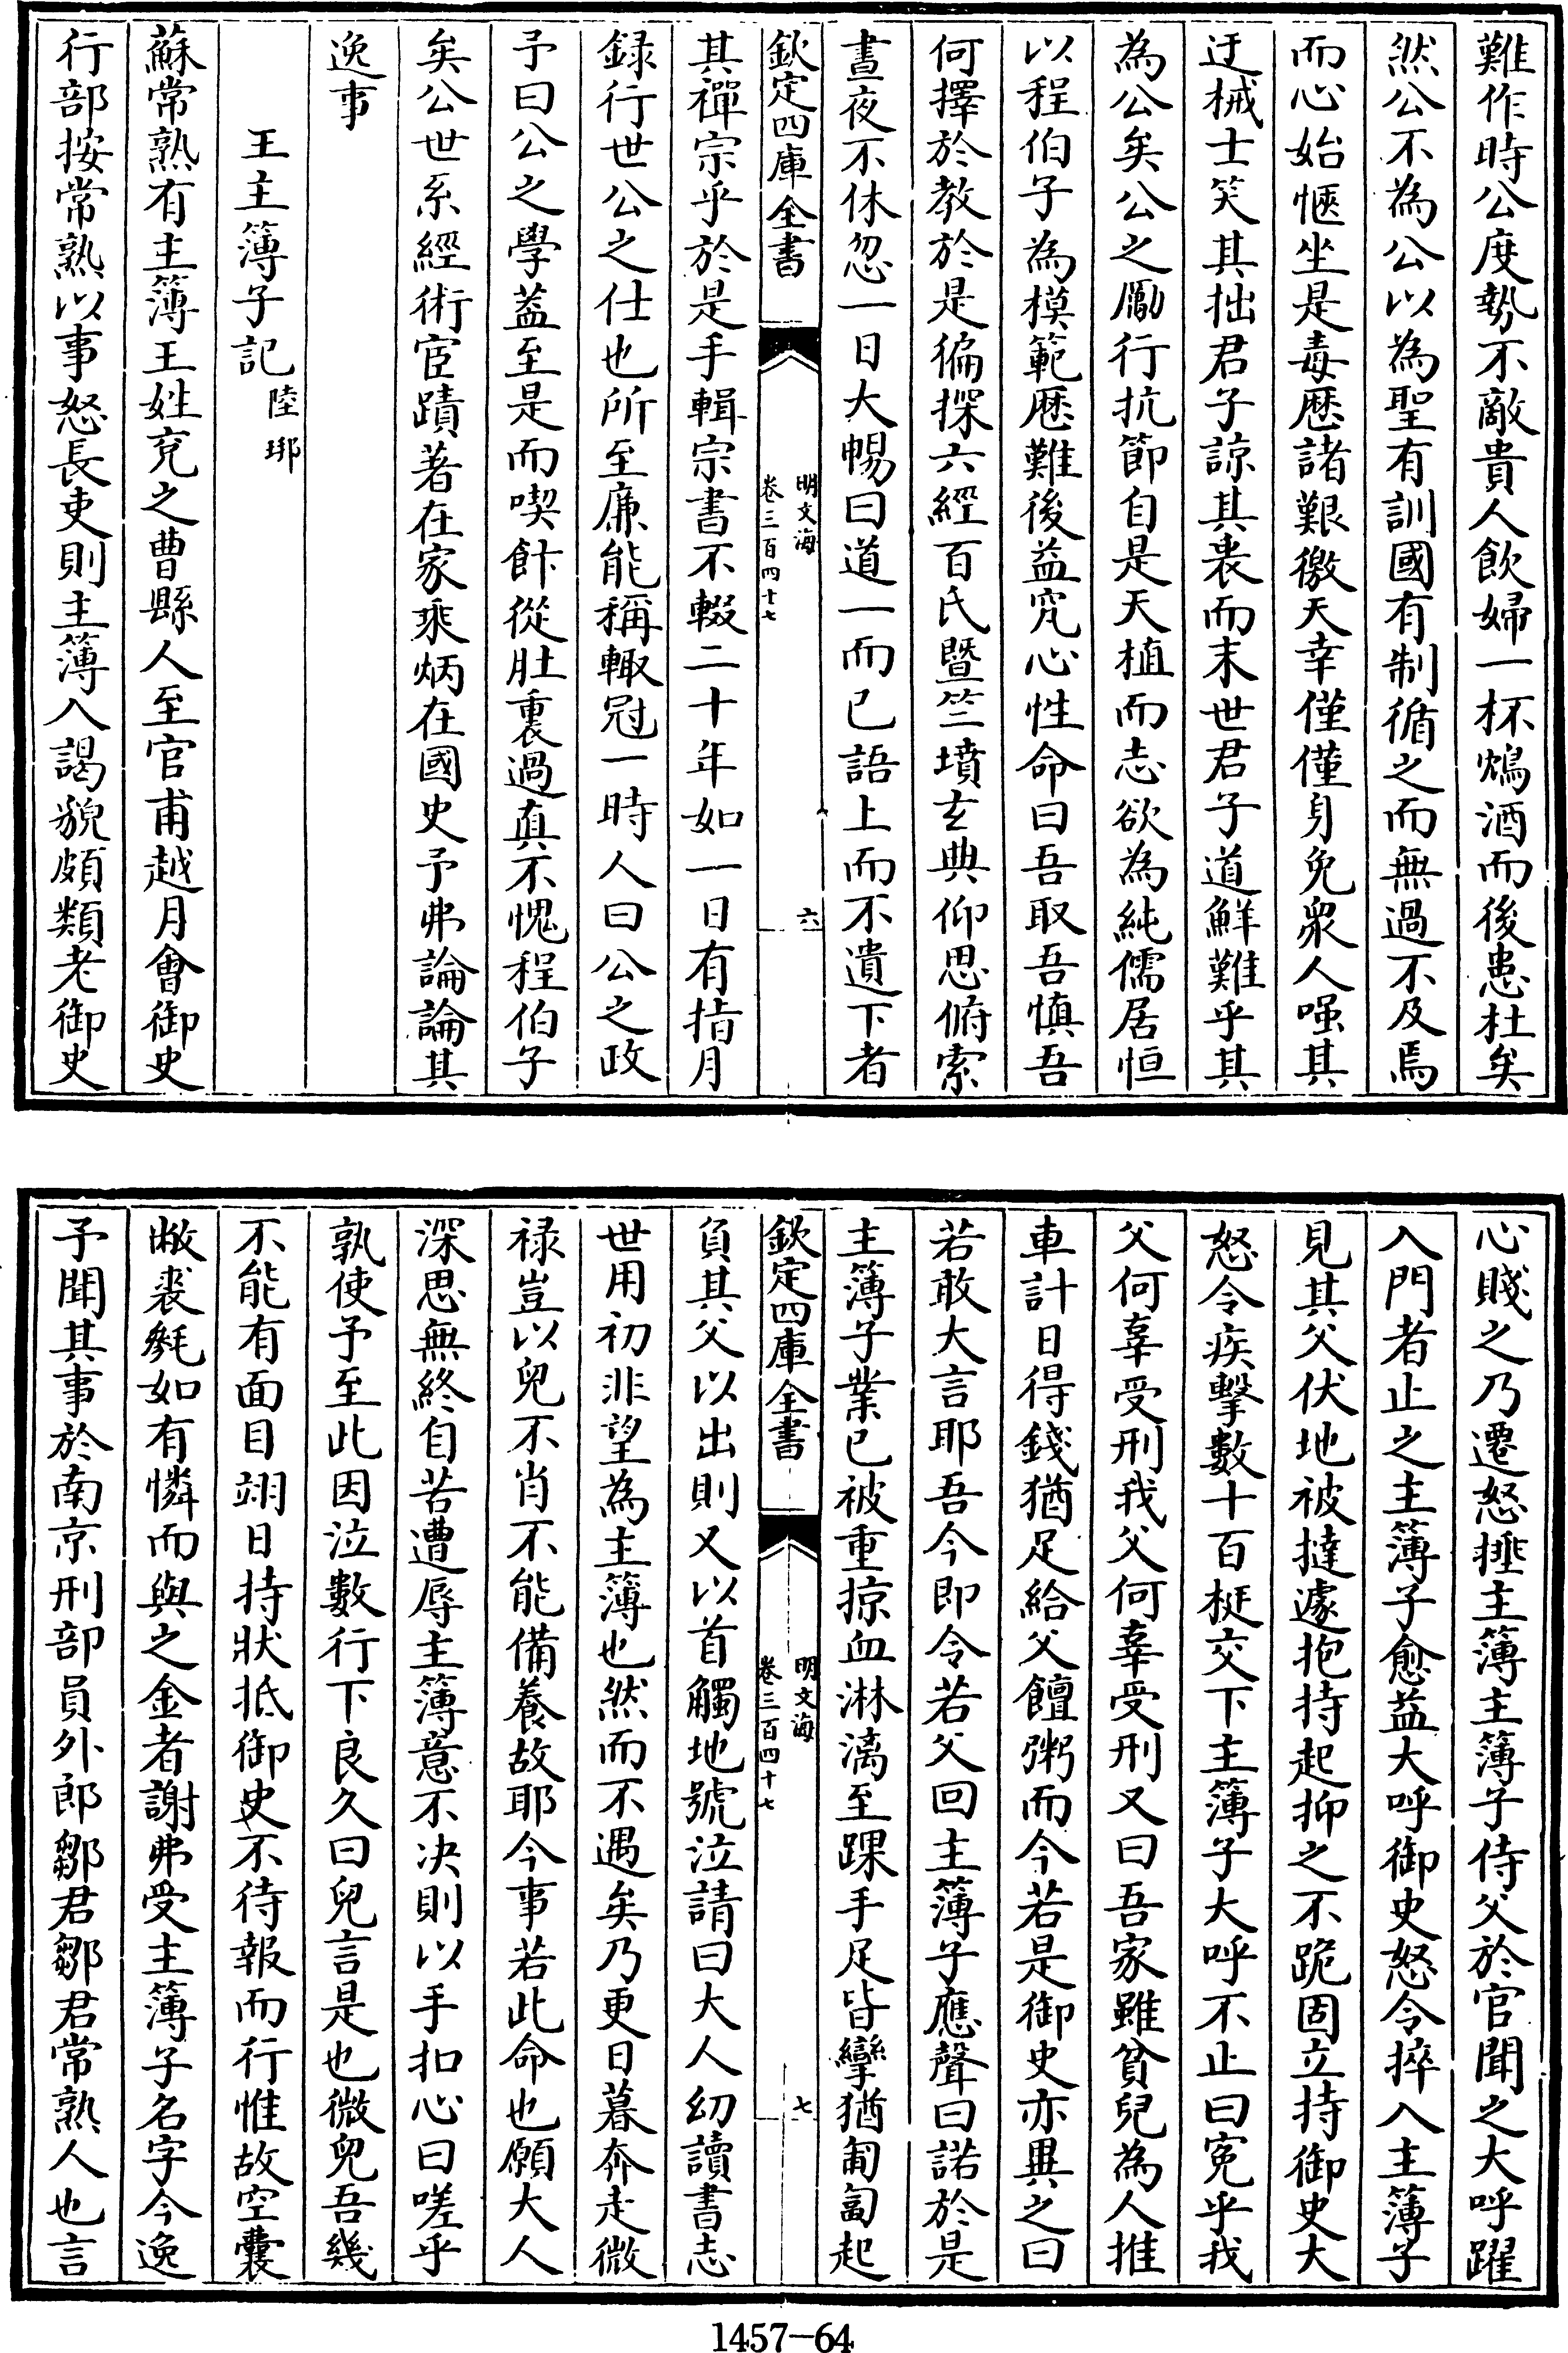 難作時公度勢不敵貴人飲婦一杯鴆酒而後患杜矣
然公不為公以為聖有訓國有制循之而無過不及焉
而心始愜坐是毒厯諸艱徼天幸僅僅身免衆人嗤其
迂械士笑其拙君子諒其衷而末世君子道鮮難乎其
為公矣公之勵行抗節自是天植而志欲為純儒居恒
以程伯子為模範厯難後益究心性命曰吾取吾慎吾
何擇於教於是徧探六經百氏暨竺墳玄典仰思俯索
晝夜不休忽一日大暢曰道一而已語上而不遺下者
欽定四庫全書
明文海
卷三百四十七
六
其禪宗乎於是手輯宗書不輟二十年如一日有指月
録行世公之仕也所至廉能稱輙冠一時人曰公之政
予曰公之學葢至是而喫飰從肚裏過真不愧程伯子
矣公世系經術宦蹟著在家乘炳在國史予弗論論其
逸事
王主簿子記 陸琊
蘇常熟有主簿王姓兗之曹縣人至官甫越月會御史
行部按常熟以事怒長吏則主簿入謁貌頗類老御史
心賤之乃遷怒捶主簿主簿子侍父於官聞之大呼躍
入門者止之主簿子愈益大呼御史怒令捽入主簿子
見其父伏地被撻遽抱持起抑之不跪固立持御史大
怒令疾擊數十百梃交下主簿子大呼不止曰寃乎我
父何辜受刑我父何辜受刑又曰吾家雖貧兒為人推
車計日得錢猶足給父饘粥而今若是御史亦異之曰
若敢大言耶吾今即令若父回主簿子應聲曰諾於是
主簿子業已被重掠血淋漓至踝手足皆攣猶匍匐起
欽定四庫全書
明文海
卷三百四十七
七
負其父以出則又以首觸地號泣請曰大人幼讀書志
世用初非望為主簿也然而不遇矣乃更日暮奔走微
禄豈以兒不肖不能備養故耶今事若此命也願大人
深思無終自苦遭辱主簿意不决則以手扣心曰嗟乎
孰使予至此因泣數行下良久曰兒言是也微兒吾幾
不能有面目翊日持狀抵御史不待報而行惟故空囊
敝裘毿如有憐而與之金者謝弗受主簿子名字今逸
予聞其事於南京刑部員外郎鄒君鄒君常熟人也言
1457-64